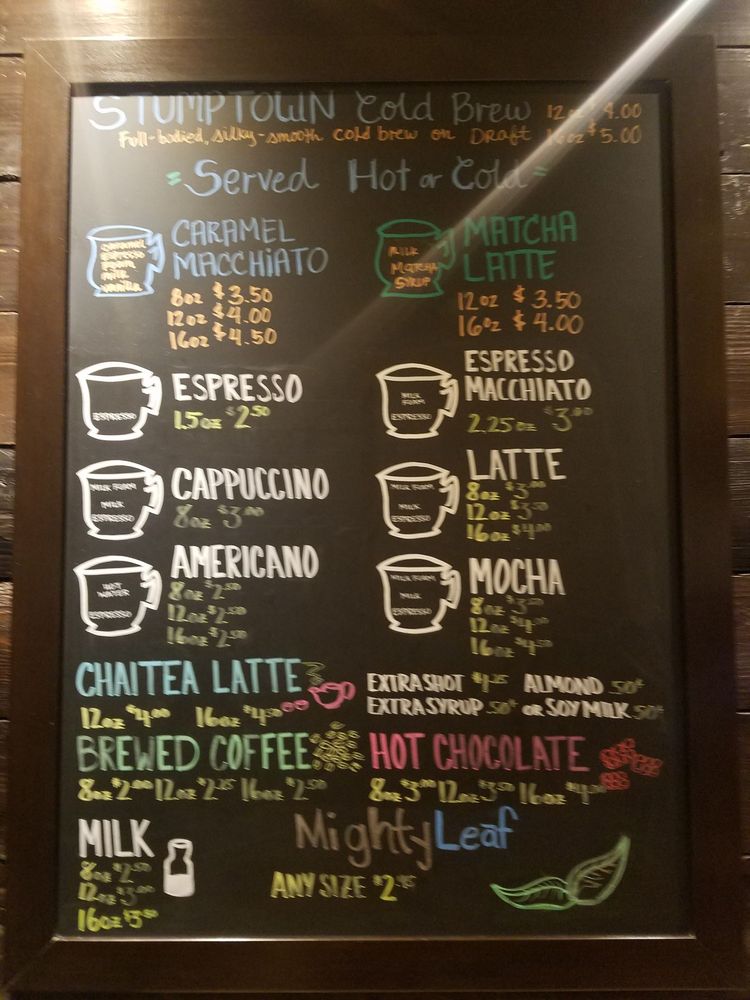 STUMPTOWN Cold Brew 12oz $4.00
Full-bodied, silky-smooth cold brew on Draft 16oz $5.00
Served Hot or Cold
CARAMEL MACCHIATO
CARAMEL
ESPRESSO
FOAM
MILK
VANILLA
8oz $3.50
12oz $4.00
16oz $4.50
MATCHA LATTE
MILK
MATCHA
SYRUP
12oz $3.50
16oz $4.00
ESPRESSO
ESPRESSO
1.5oz $2.50
ESPRESSO
MACCHIATO
MILK
FOAM
ESPRESSO
2.25oz $3.00
CAPPUCCINO
MILK FOAM
MILK
ESPRESSO
8oz $3.00
LATTE
MILK FOAM
MILK
ESPRESSO
8oz $3.00
12oz $3.50
16oz $4.00
AMERICANO
HOT
WATER
ESPRESSO
8oz $2.50
12oz $2.50
16oz $2.50
MOCHA
MILK FOAM
MILK
ESPRESSO
8oz $3.50
12oz $4.00
16oz $4.50
CHAITEA LATTE
12oz $4.00 16oz $4.50
EXTRA SHOT $1.25 ALMOND .50¢
EXTRA SYRUP .50¢ OR SOY MILK .50¢
BREWED COFFEE
8oz $2.00 12oz $2.25 16oz $2.50
HOT CHOCOLATE
8oz $3.00 12oz $3.50 16oz $4.00
MILK
8oz $2.50
12oz $3.00
16oz $3.50
Mighty Leaf
ANY SIZE $2.95